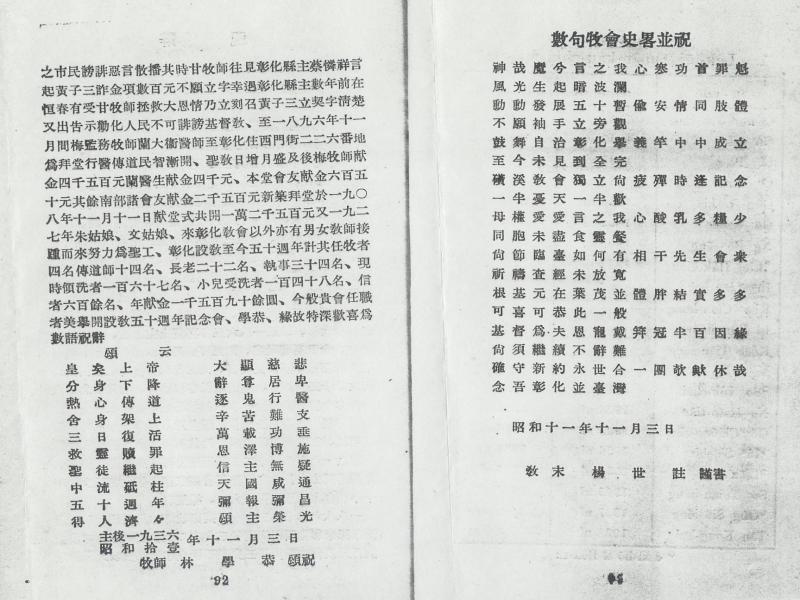 之市民謗誹惡言散播其時甘牧師往見彰化縣主蔡憐祥言
起黃子三詐金項數百元不願立字幸遇彰化縣主數年前在
恒春有受甘牧師拯救大恩情乃立刻召黃子三立契字清楚
又出告示勸化人民不可誹謗基督敎、至一八九六年十一
月間梅監務牧師蘭大衞醫師至彰化住西門街二二六番地
爲拜堂行醫傳道民智漸開、聖敬日增月盛及後梅牧師献
金四千五百元蘭醫生献金四千元、本堂會友献金六百五
十元其餘南部諸會友献金二千五百元新築拜堂於一九〇
八年十一月十一日献堂式共開一萬二千五百元又一九二
七年朱姑娘、文姑娘、來彰化敎會以外亦有男女敎師接
踵而來努力爲聖工、彰化設敎至今五十週年計共任牧者
四名傳道師十四名、長老二十二名、執事三十四名、現
時領洗者一百六十七名、小兒受洗者一百四十八名、信
者六百餘名、年献金一千五百九十餘圓、今般貴會任職
者美擧開設敎五十週年記念會、學恭、緣故特深歡喜爲
數語祝辭
頌云
皇矣上帝 大顯慈悲
分身下降 辭尊居卑
熱心傳道 逐鬼行醫
舍身架上 辛苦難支
三日復活 萬載功垂
救靈贖罪 恩澤博施
聖徒繼起 信主無疑
中流砥柱 天國咸通
五十週年 彌報彌昌
得人濟々 頌主榮光
主後一九三六
昭和拾壹 年十一月三日
牧師 林學恭 頌祝
92
數句牧會史畧並祝
神哉魔兮言之我心寒功首罪魁
風光生起暗波瀾
動動發展五十暫偸安情同肢體
不願袖手立旁觀
鼓舞自治彰化擧義竿中中成立
至今未見到全完
磺溪敎會獨立尙疲殫時逢記念
一半憂天一半歡
母權愛愛言之我心酸乳多糧少
同胞未盡食靈餐
尙節臨臺如何有相干先生會衆
祈禱查經未放寬
根基元在葉茂並體胖結實多多
可喜可恭此一般
基督爲夫恩寵戴笄冠牛百因緣
尙須繼續不辭難
確守新約永世合一團欹猷休哉
念吾彰化並臺灣
昭和十一年十一月三日
敎末 楊世註 謹書